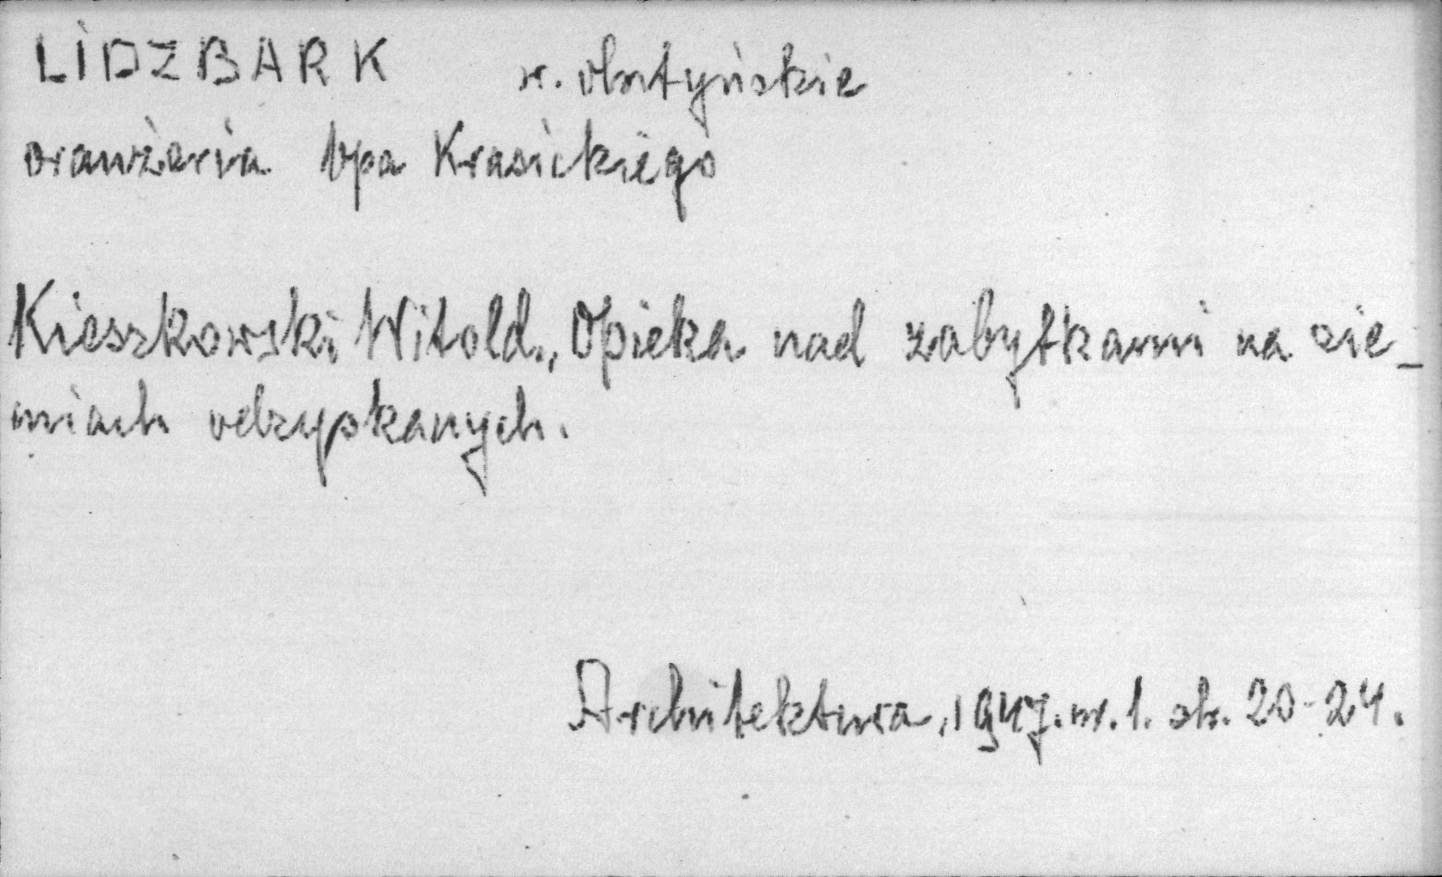 LIDZBARK w. olsztyńskie
oranżeria bpa Krasickiego
Kieszkowski Witold., Opieka nad zabytkami na zie-
miach odzyskanych.
Architektura, 1947. nr. 1. str. 20-24.